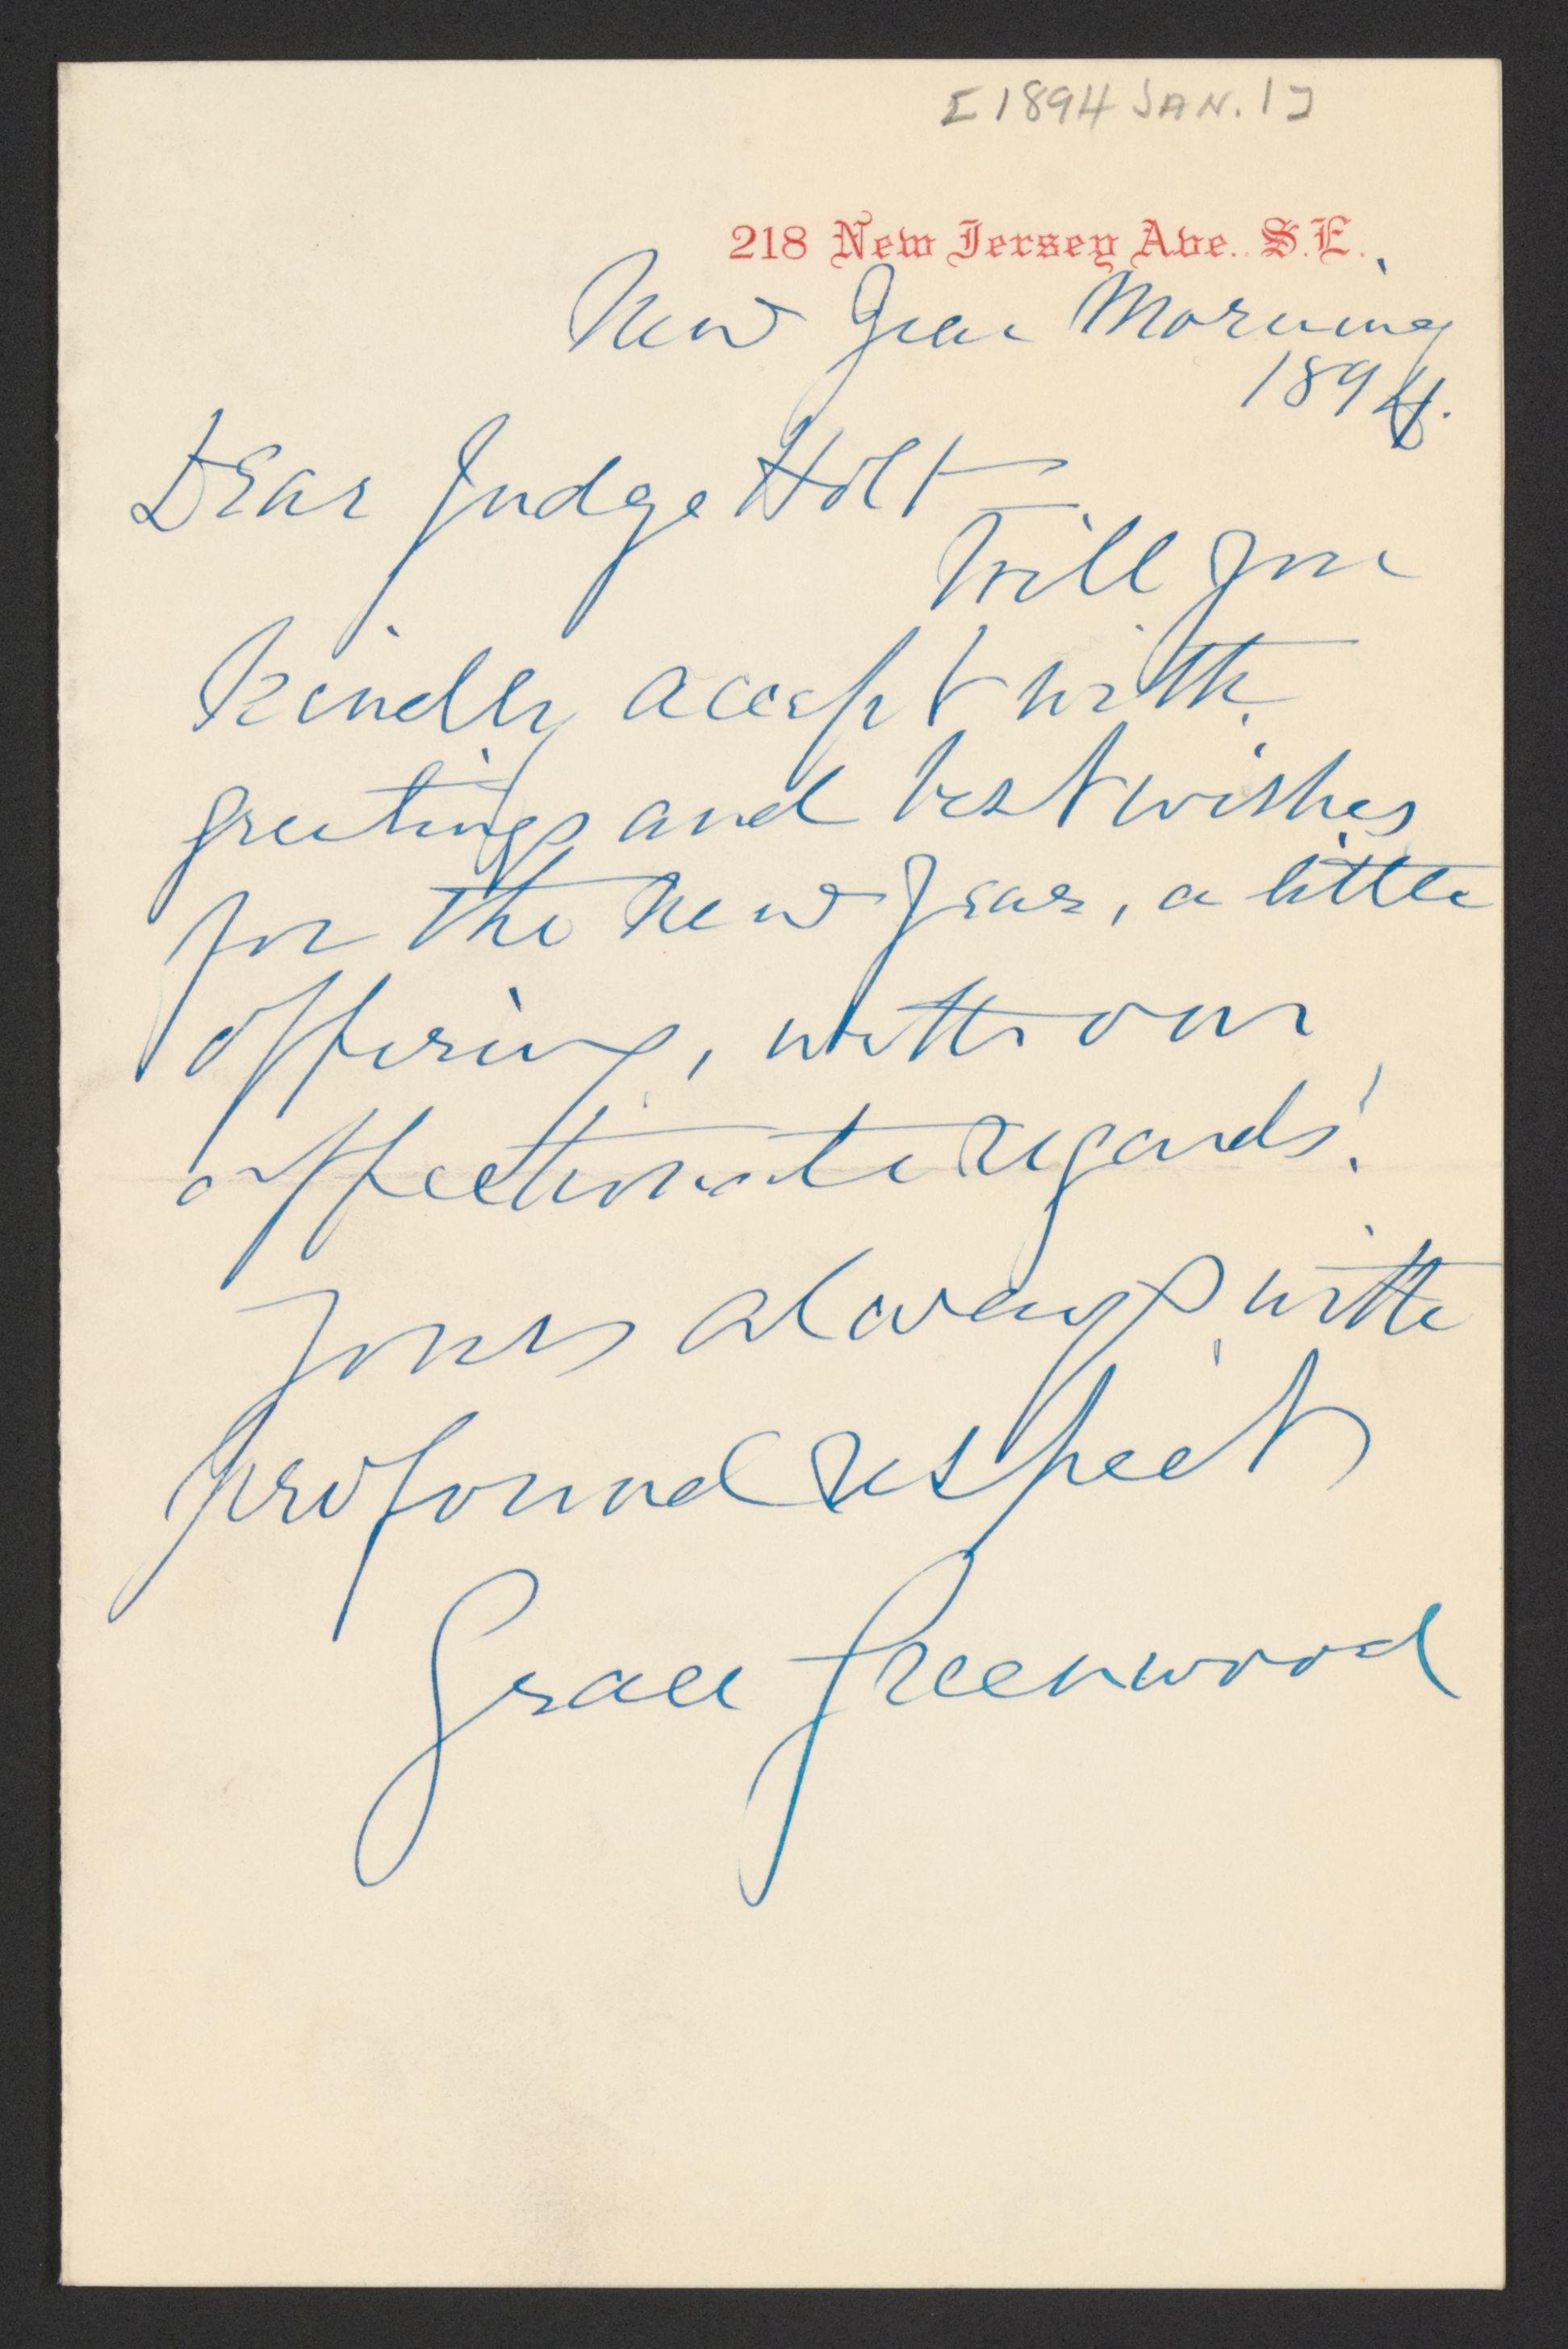 [1894 JAN. 1]
218 New Jersey Ave. S.E.
New Year Morning
1894.
Dear Judge Holt —
Will you
kindly accept with
greetings and best wishes
for the New Year, a little
offering, with our
affectionate regards!
Yours always with
profound respect
Grace Greenwood